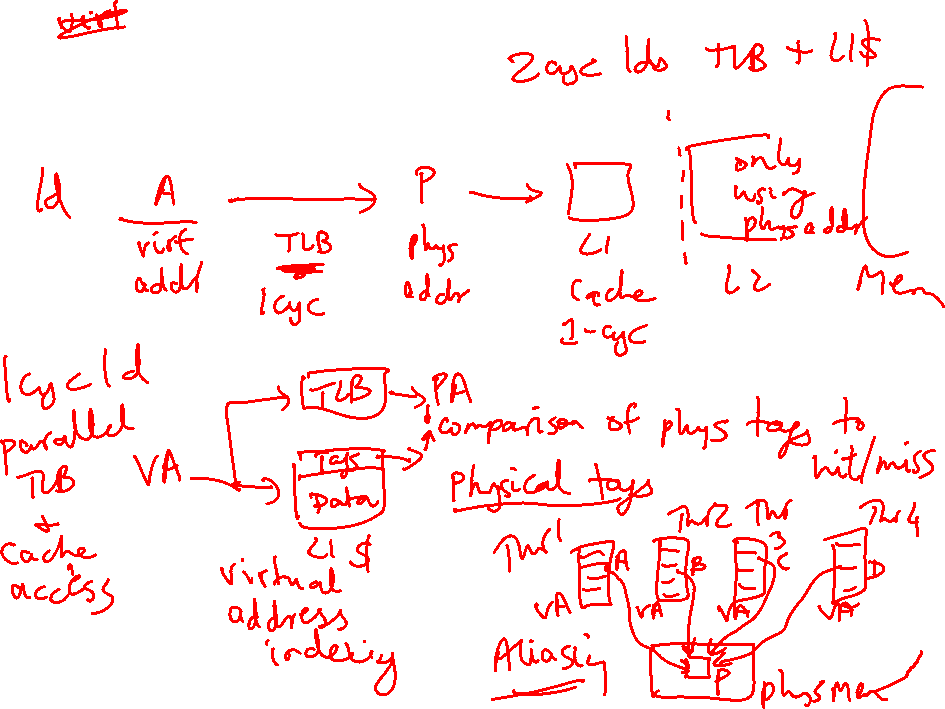 2 cyc lds TLB + L1$
ld A P
virt addr
TLB
1 cyc
phys addr
L1 cache
1-cyc
only using phys addr
L2
Mem
1 cyc ld
parallel TLB + cache access
VA
TLB
PA
Tags
Data
L1 $
virtual address indexing
comparison of phys tags to hit/miss
physical tags
Thr1 Thr2 Thr 3 Thr4
A B C D
VA VA VA VA
Aliasing
P
phys mem